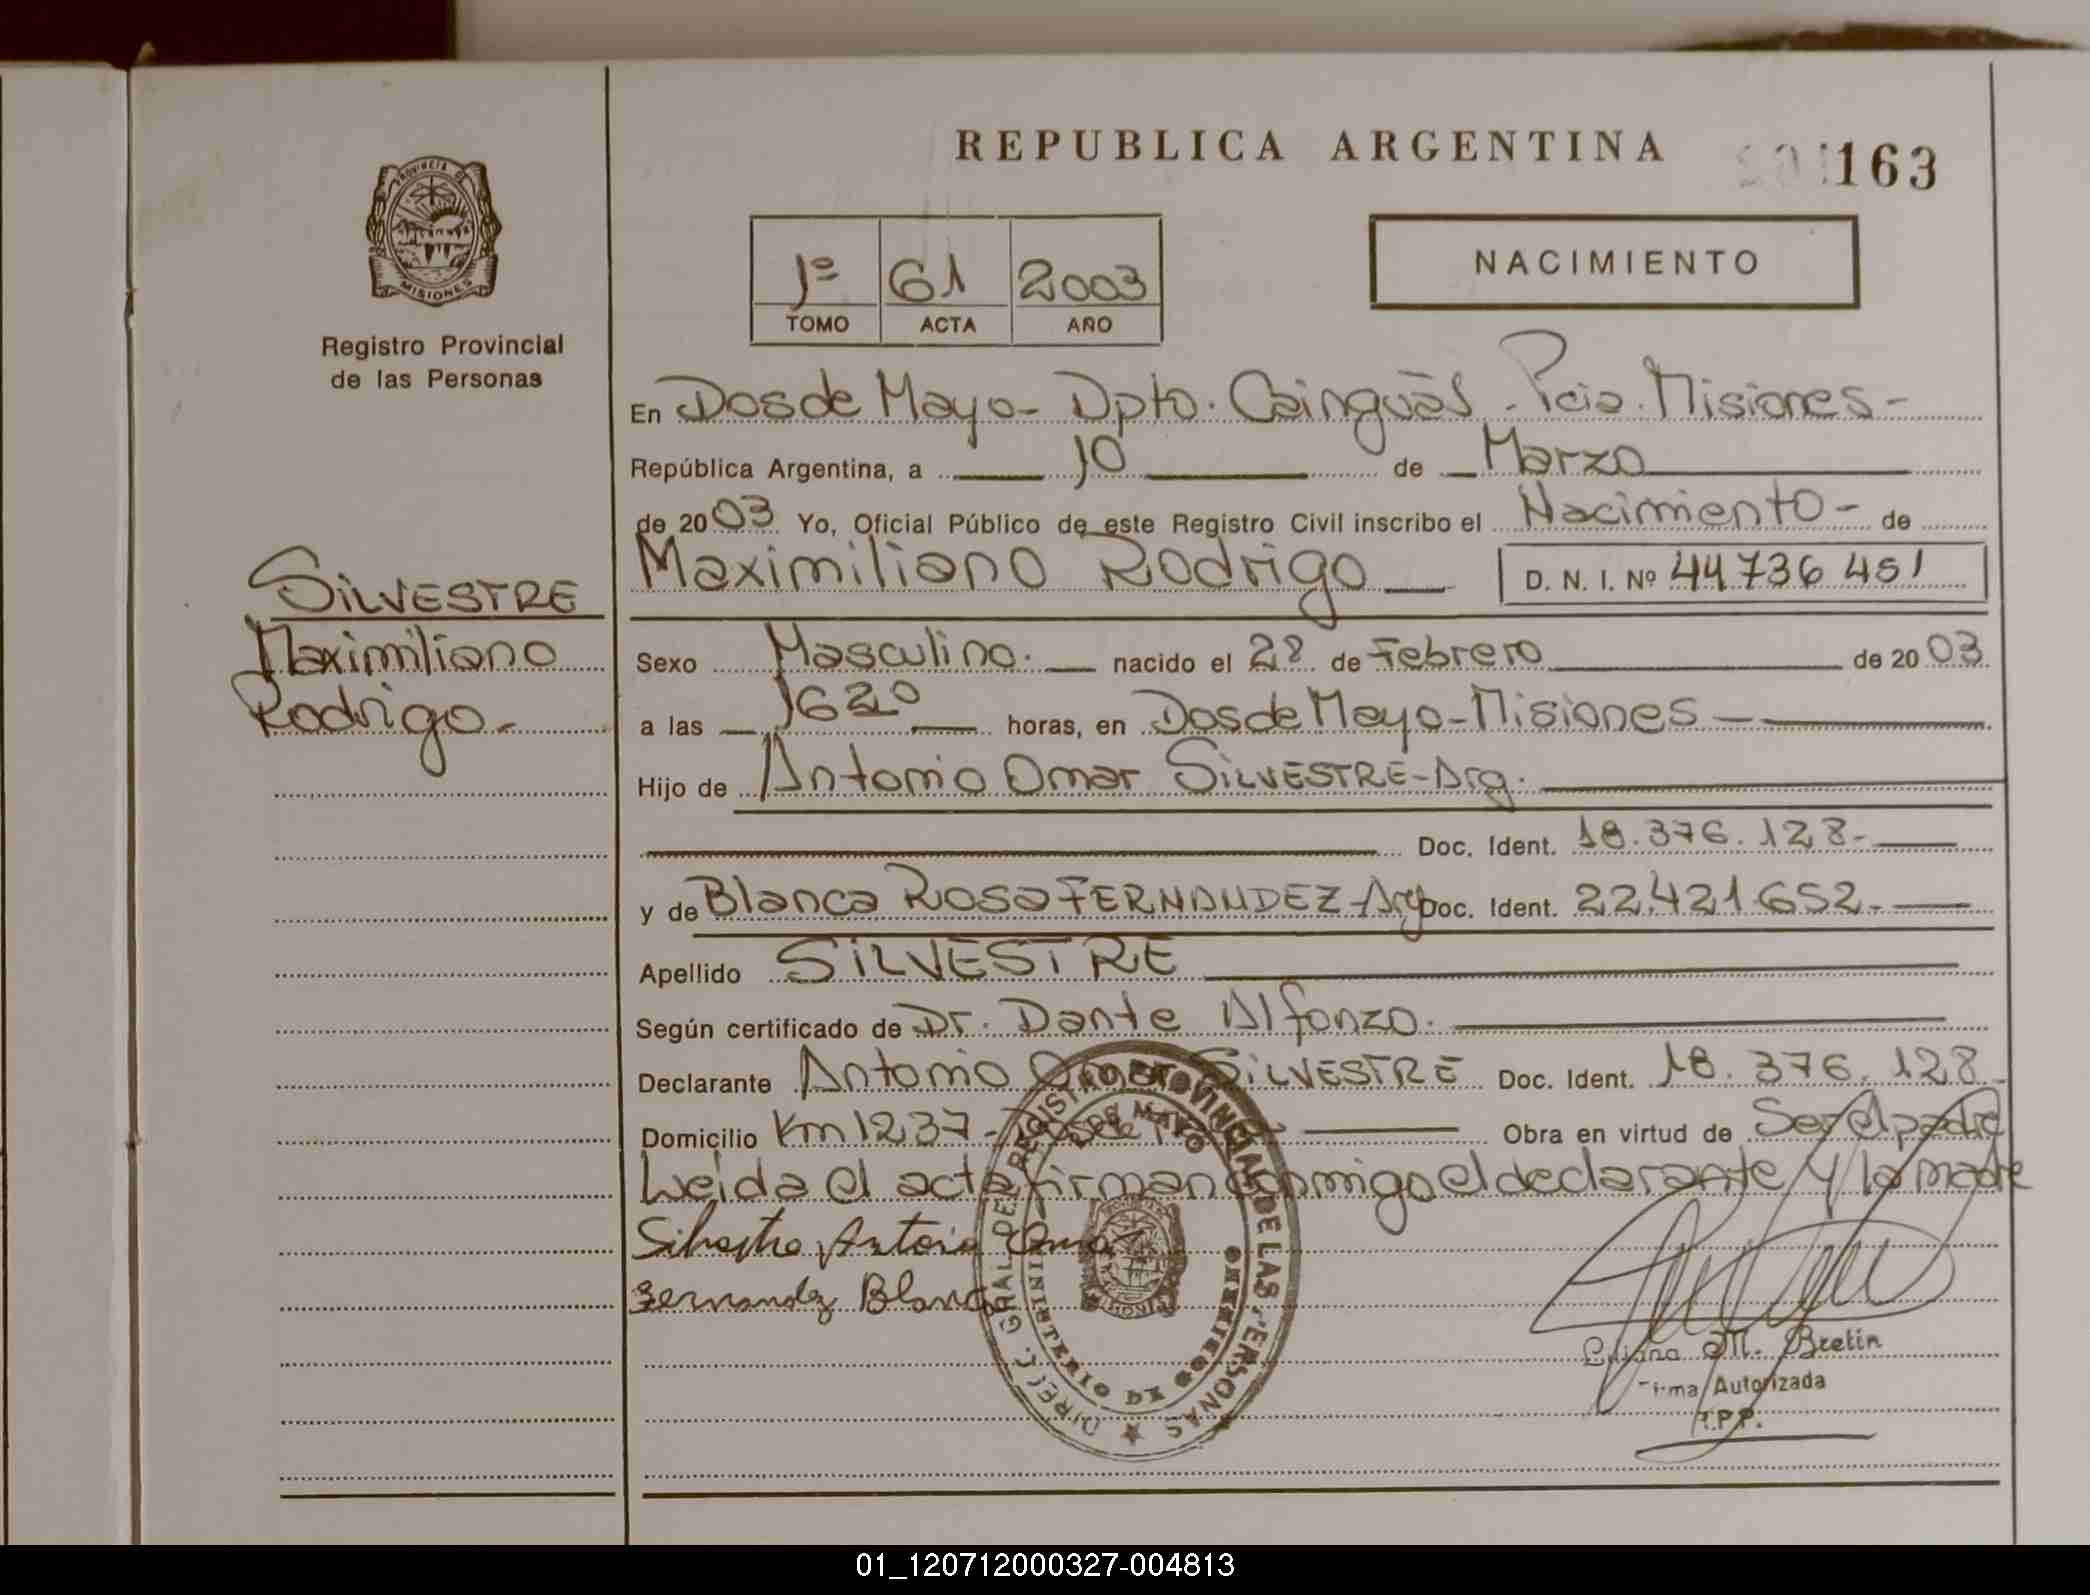 REPUBLICA ARGENTINA
163
PROVINCIA DE
MISIONES
Registro Provincial
de las Personas
1º 61 2003
TOMO ACTA AÑO
NACIMIENTO
En Dos de Mayo - Dpto. Cainguás - Pcia. Misiones -
República Argentina, a 10 de Marzo
de 2003 Yo, Oficial Público de este Registro Civil inscribo el Nacimiento - de
Maximiliano Rodrigo D. N. I. Nº 44 736 451
SILVESTRE
Maximiliano
Rodrigo -
Sexo Masculino. nacido el 28 de Febrero de 2003
a las 1620 horas, en Dos de Mayo - Misiones
Hijo de Antonio Omar SILVESTRE - Arg.
Doc. Ident. 18.376.128 -
y de Blanca Rosa FERNANDEZ - Arg Doc. Ident. 22.421.652 -
Apellido SILVESTRE
Según certificado de Dr. Dante Alfonzo.
Declarante Antonio Omar SILVESTRE Doc. Ident. 18.376.128
Domicilio Km 1237 - Dos de Mayo Obra en virtud de Ser el padre
Leida el acta firman conmigo el declarante y la madre
Silvestre Antonio Omar
Fernandez Blanca
DIREC. GRAL DEL REGISTRO PROVINCIAL DE LAS PERSONAS
DOS DE MAYO
MINISTERIO DE GOBIERNO
M. Bretin
Firma Autorizada
R.P.P.
01_120712000327-004813